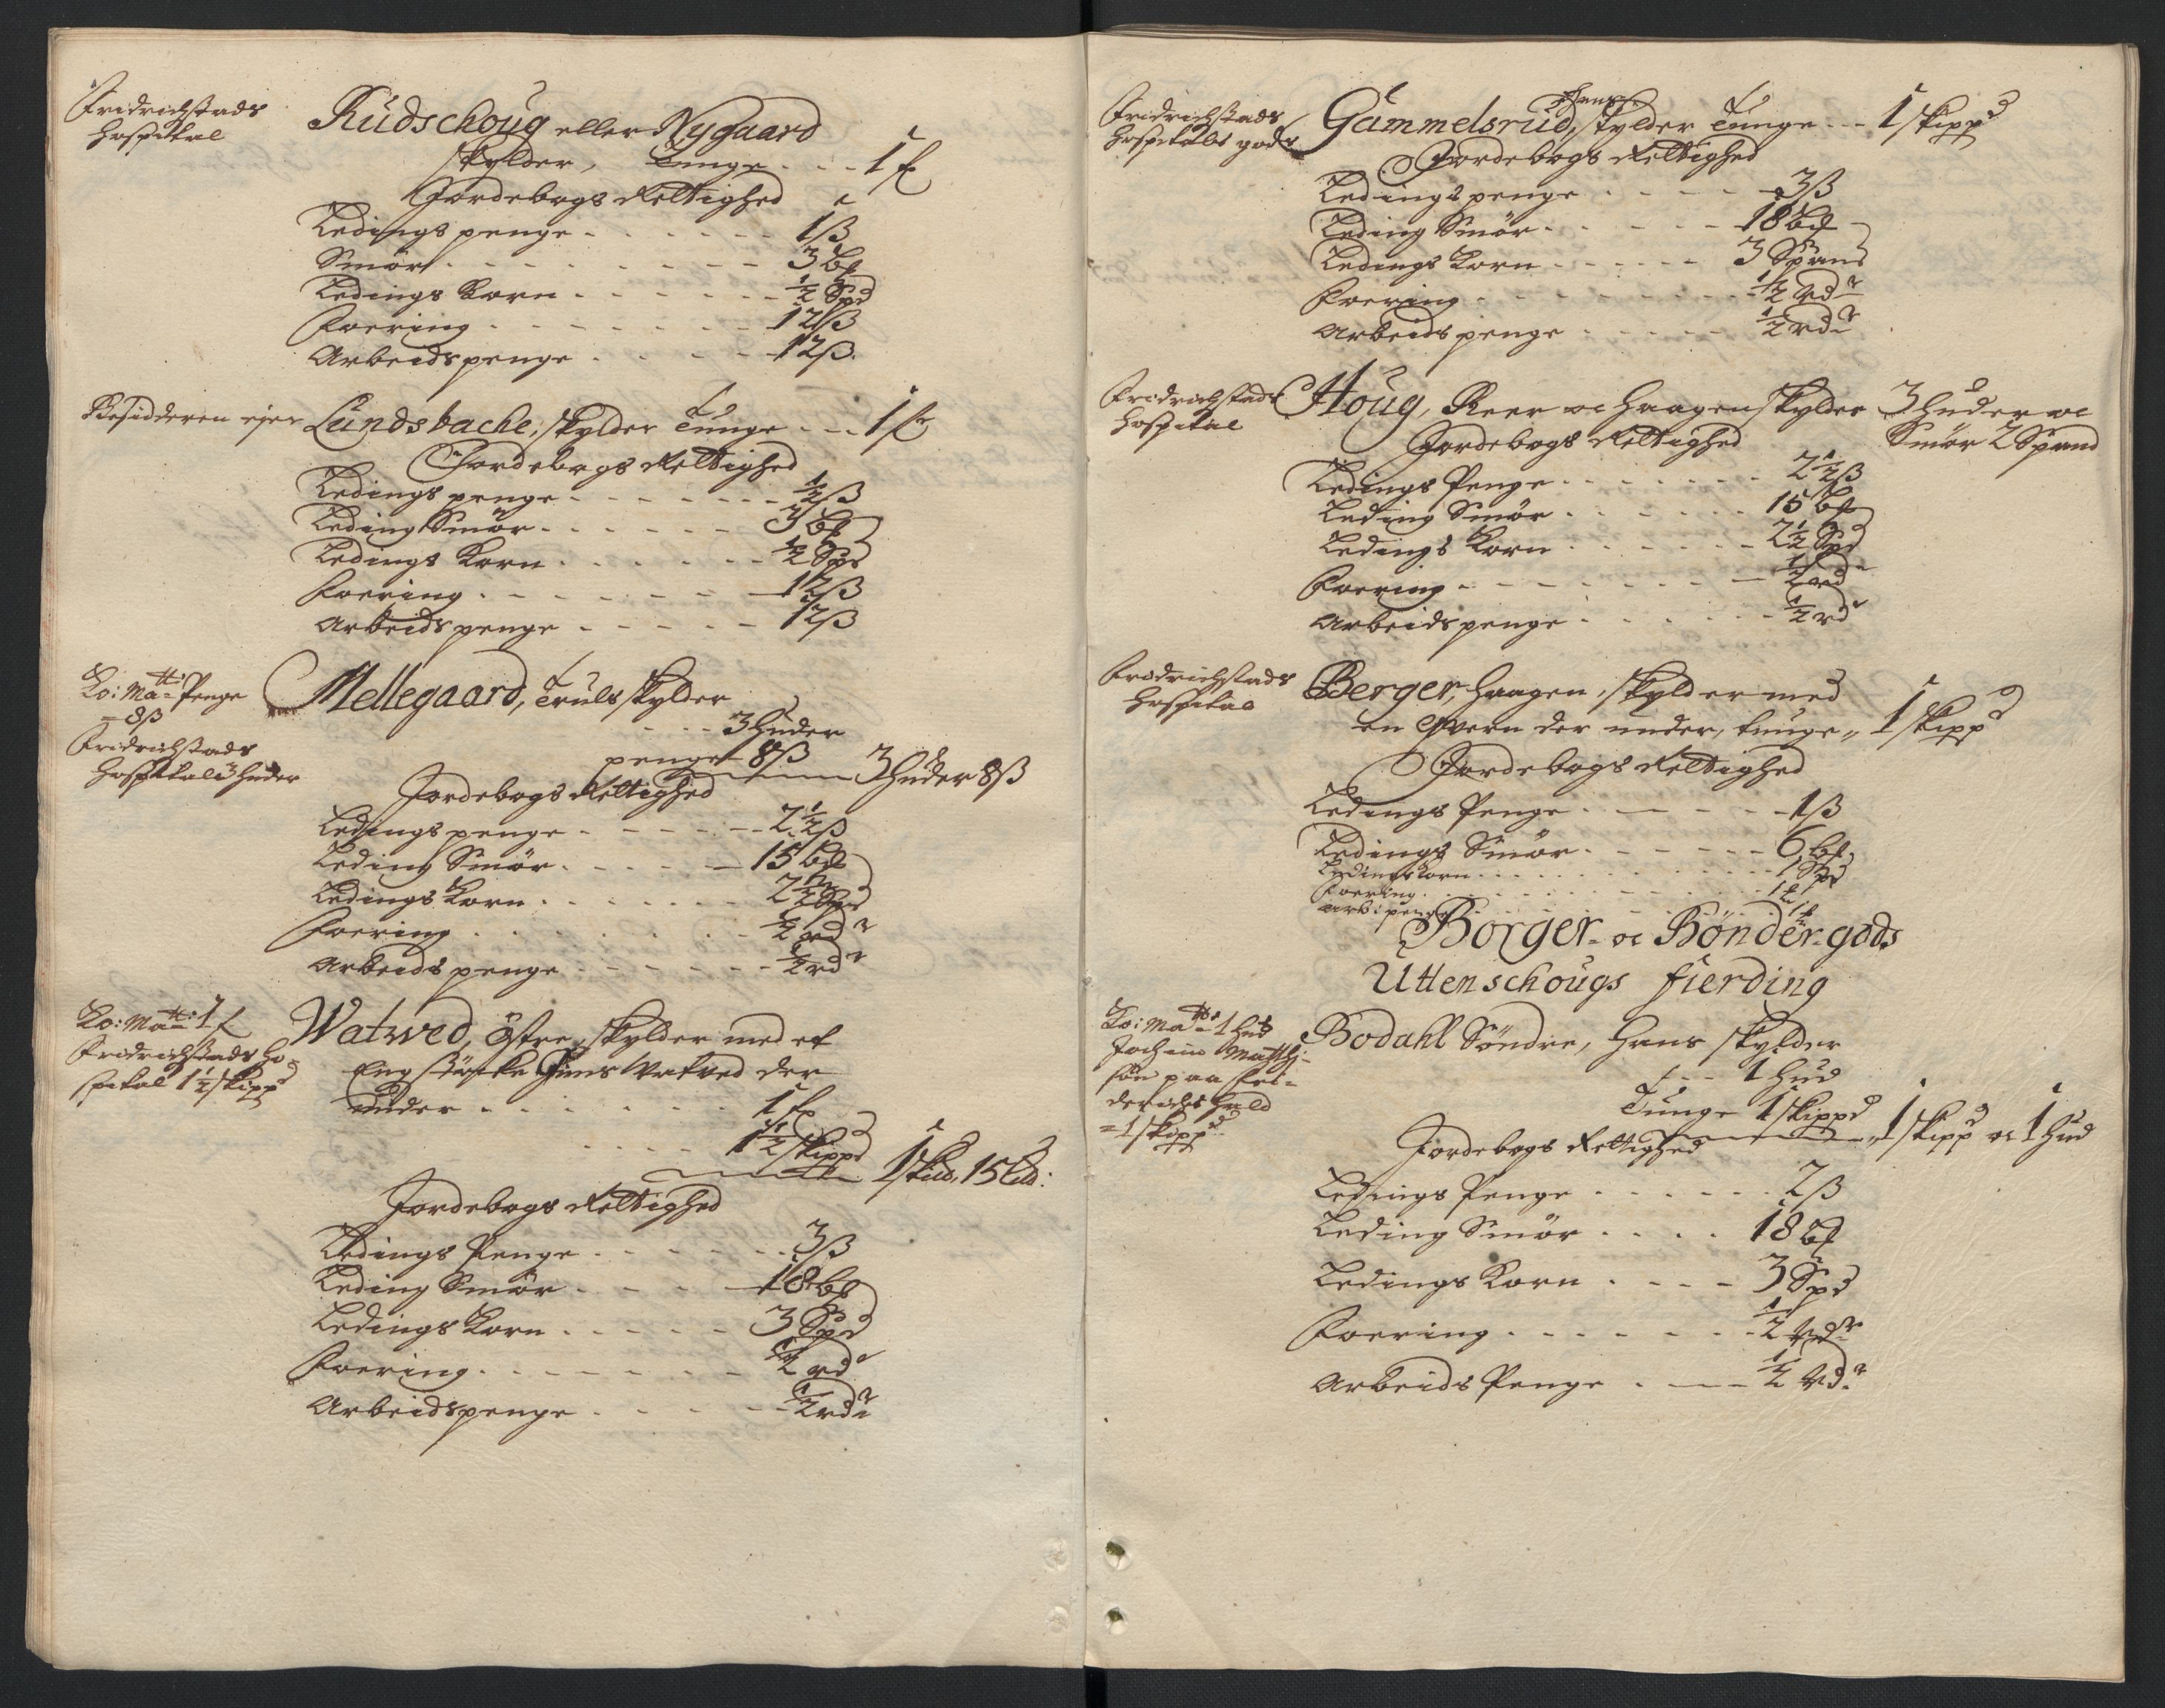 Fridrichstads
Hospital
Rudschoug eller Nygaard
skylder, Tunge - - - 1 f
Jordebogs Rettighed
Ledings penge - - - - - - 1 ß
Smør - - - - - - - - 3 bf
Ledings Korn - - - - - - ½ Spd
Foering - - - - - - - 12 ß
Arbeidspenge - - - - - 12 ß.
Besidderen ejer
Lundsbache, skylder Tunge - - - 1 f
Jordebogs Rettighed
Ledings penge - - - - - - - ½ ß
Leding Smør - - - - - - 3 bf
Ledings Korn - - - - - - ½ Spd
Foering - - - - - - - 12 ß
Arbeidspenge - - - - - 12 ß
Ko: Ma: tt Penge
= 8 ß
Fridrichstads
Hospital 3 huder
Mellegaard, Truls skylder
- - - 3 huder
penge 8 ß
3 huder 8 ß
Jordebogs Rettighed
Ledings penge - - - - - - 2½ ß
Leding Smør - - - - - 15 bf
Ledings Korn - - - - - - 2½ Spd
Foering - - - - - - - ½ rdr
Arbeids penge - - - - - - ½ rdr
Ko: Ma: tt 1 f
Fridrichstads Ho=
spital 1½ skippd
Watwed, Østre, skylder med et
Eng støcke Jens Watved der
under - - - - - - 1 f
- - - - 1½ skippd
1 skid, 15 Ld:
Jordebogs Rettighed
Ledings Penge - - - - - - 3 ß
Leding Smør - - - - 18 bf
Ledings Korn - - - - - 3 Spd
Foering - - - - - - - ½ rdr
Arbeidspenge - - - - - - ½ rdr
Fridrichstads
Hospitals gods
Hans
Gammelsrud, skylder Tunge - - 1 skippd
Jordebogs Rettighed
Ledings penge - - - - - 3 ß
Leding Smør - - - - - 18 bf
Ledings Korn - - - - - 3 Spand
Foering - - - - - - - - ½ rdr
Arbeids penge - - - - - ½ rdr
Fridrichstads
Hospital
Houg, Peer oc Haagen skylder 3 huder oc
Smør 2 Spand
Jordebogs Rettighed
Ledings Penge - - - - - - 2½ ß
Leding Smør - - - - - - 15 bf
Ledings Korn - - - - - - 2½ Spd
Foering - - - - - - - - ½ rdr
Arbeidspenge - - - - - - ½ rdr
Fridrichstads
Hospital
Berger, Haagen, skylder med
en Qvern der under, tunge „ 1 skippd
Jordebogs Rettighed
Ledings Penge - - - - - 1 ß
Ledings Smør - - - - - - 6 bf
Ledings Korn - - - - - - 1 Spd
Foering - - - - - -
arb: penge - - - - - -
Borger- oc Bønder-gods
Uttenschougs fierding
Ko: Ma: tt 1 hud
Jochim Matthi-
søn paa Fri-
derichs hald
= 1 skippd
Bodahl Søndre, Hans skylder
- - - 1 hud
Tunge 1 skippd
„ 1 skippd oc 1 hud
Jordebogs Rettighed
Ledings Penge - - - - - - 2 ß
Leding Smør - - - - 18 bf
Ledings Korn - - - - 3 Spd
Foering - - - - - - - ½ rdr
Arbeids Penge - - - ½ rdr